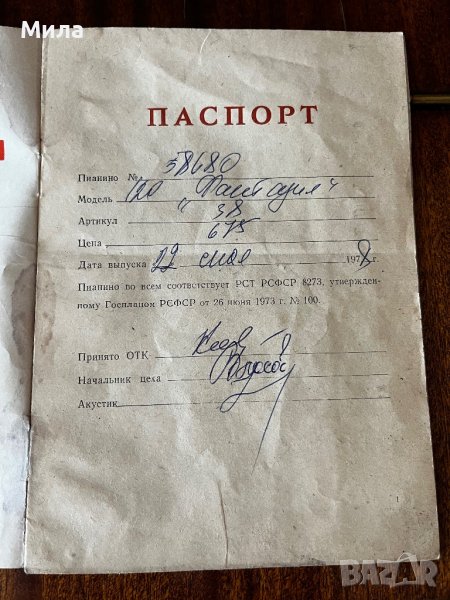 Мила
ПАСПОРТ
Пианино № 58680
Модель 120 „Фантазия"
Артикул 38
Цена 675
Дата выпуска 22 мая 1978 г.
Пианино во всем соответствует РСТ РСФСР 8273, утвержден-
ному Госпланом РСФСР от 26 июня 1973 г. № 100.
Принято ОТК
Начальник цеха
Акустик
BAZAR